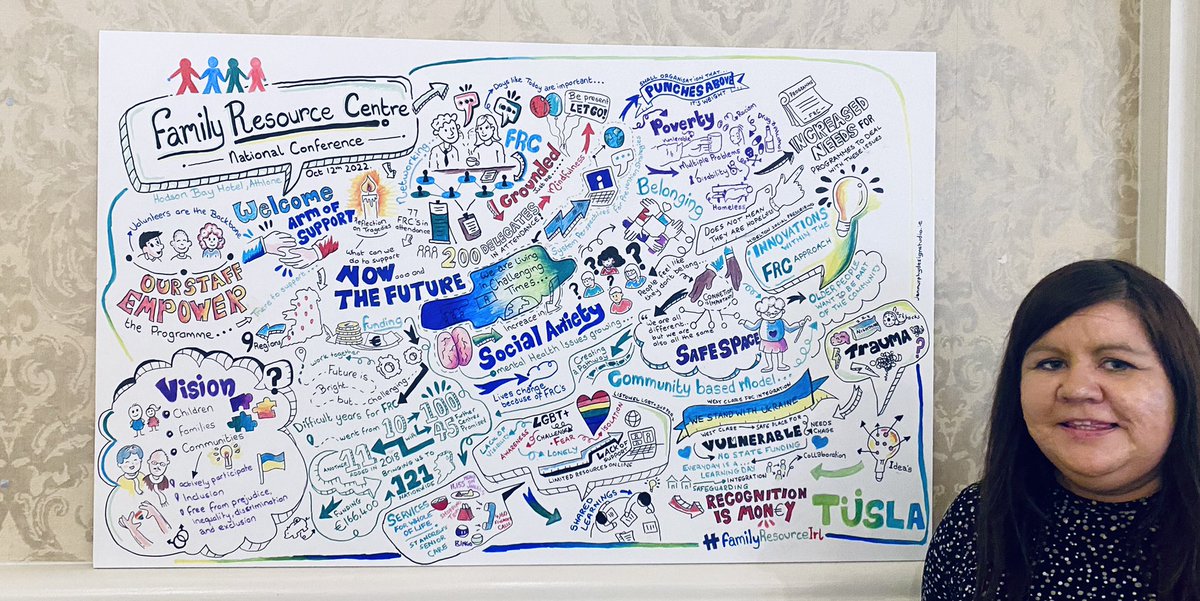 Family Resource Centre
National Conference
Oct 12th 2022.
Hodson Bay Hotel, Athlone
Volunteers are the Backbone
OUR STAFF
EMPOWER
the Programme...
Welcome
ARM OF
SUPPORT
There to support...
9
Regions
Reflection
on Tragedies
what can we
do to support
NOW... and
THE FUTURE
Funding
Networking
77
FRC's in
attendance
200 DELEGATES
IN ATTENDANCE
Days like Today are important...
FRC
Be present
LET GO!
Grounded
Mindfulness
SMALL ORGANISATION THAT...
PUNCHES ABOVE
IT'S WEIGHT
Poverty
Vulnerable
Racism
Multiple Problems
Disability
Homeless
DOES NOT MEAN
THEY ARE HOPELESS!
INCREASED
NEEDS FOR
PROGRAMMES TO DEAL
WITH THESE ISSUES
Belonging
People feel like
they don't belong...
INNOVATIONS
WITHIN THE
FRC APPROACH
OLDER PEOPLE
WANT TO BE PART
OF THE COMMUNITY
We are Living
in Challenging
Times...
Increase in
Social Anxiety
mental Health Issues growing...
Lives change
because of FRC's
Creating
Pathway
"We are all
different...
but we are
also all the same
SAFE SPACE
Community based Model...
Trauma
Vision
Children
Families
Communities
actively participate
Inclusion
free from prejudice,
inequality discrimination
and exclusion
work together
Future is
Bright...
but... challenging
Difficult years for FRC
went from 107
100
45
11
ADDED IN 2018
BRINGING US TO
121
NATIONWIDE
FUNDING
€166,400
SERVICES
FOR WHOLE
OF LIFE
ST ANDREWS
SENIOR
CARE
BINGO
LACK OF
AWARENESS
LGBT+
CHALLENGES
FEAR
LONELY
ISOLATION
LACK OF
SUPPORT
LIMITED RESOURCES ONLINE
SHARED
LEARNINGS
WEST CLARE FRC INTEGRATION
WE STAND WITH UKRAINE
WEST CLARE
SAFE PLACE FOR
VULNERABLE
NO STATE FUNDING
NEEDS
CHANGE
EVERYDAY IS A
LEARNING DAY
INTEGRATION
SAFEGUARDING
Collaboration
Idea's
RECOGNITION
IS MON€Y
TUSLA
#familyResourceIrl